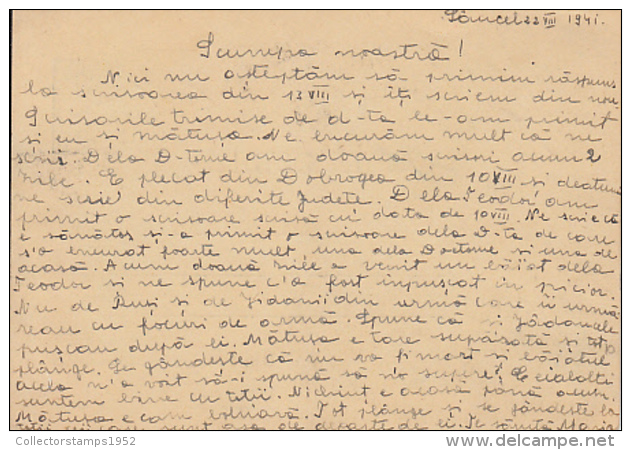 Sâncel 22 VIII 1941.
Scumpa noastră!
Nici nu așteptăm să primim răspuns
la scrisoarea din 13 VIII și îți scriem din nou.
Scrisorile trimise de d-ta le-am primit
și eu și mătușa. Ne bucurăm mult că ne
scrii. Dela D-tine am două scrisori acum 2
zile. E plecat din Dobrogea din 10 VIII și
ne scrie din diferite județe. Dela Teodor am
primit o scrisoare scrisă cu data de 10 VIII. Ne scrie că
e sănătos și-a primit o scrisoare dela D-ta de care
s'a bucurat foarte mult una dela și una de
acasă. Acum două zile a venit un băiat dela
Teodor și ne spune c'a fost împușcat în picior.
Nu de Ruși și de Jidanii din urmă care îi urmă
reau cu focuri de armă. Spune că și Jidancele
pușcau după ei. Mătușa e tare supărată și tot
plânge. Se gândește că nu va fi mort și băiatul
acela n'a voit să-i spună să nu supere. Ceialolți
suntem bine cu toții. Nichint e acasă până acum.
Mătușa e cam bolnavă. Tot plânge și se gândește la
toții așa de departe de ei. Te sărută Maria
Collectorstamps1952
delcampe.net